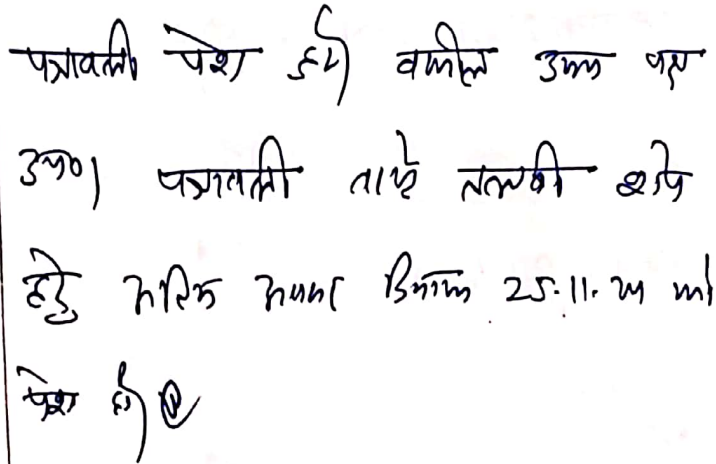 पत्रावली पेश हुई। वकील उभय पक्ष
उप०। पत्रावली वास्ते तलबी शेष
हेतु अंतिम अवसर दिनांक 25.11.24 को
पेश हो।